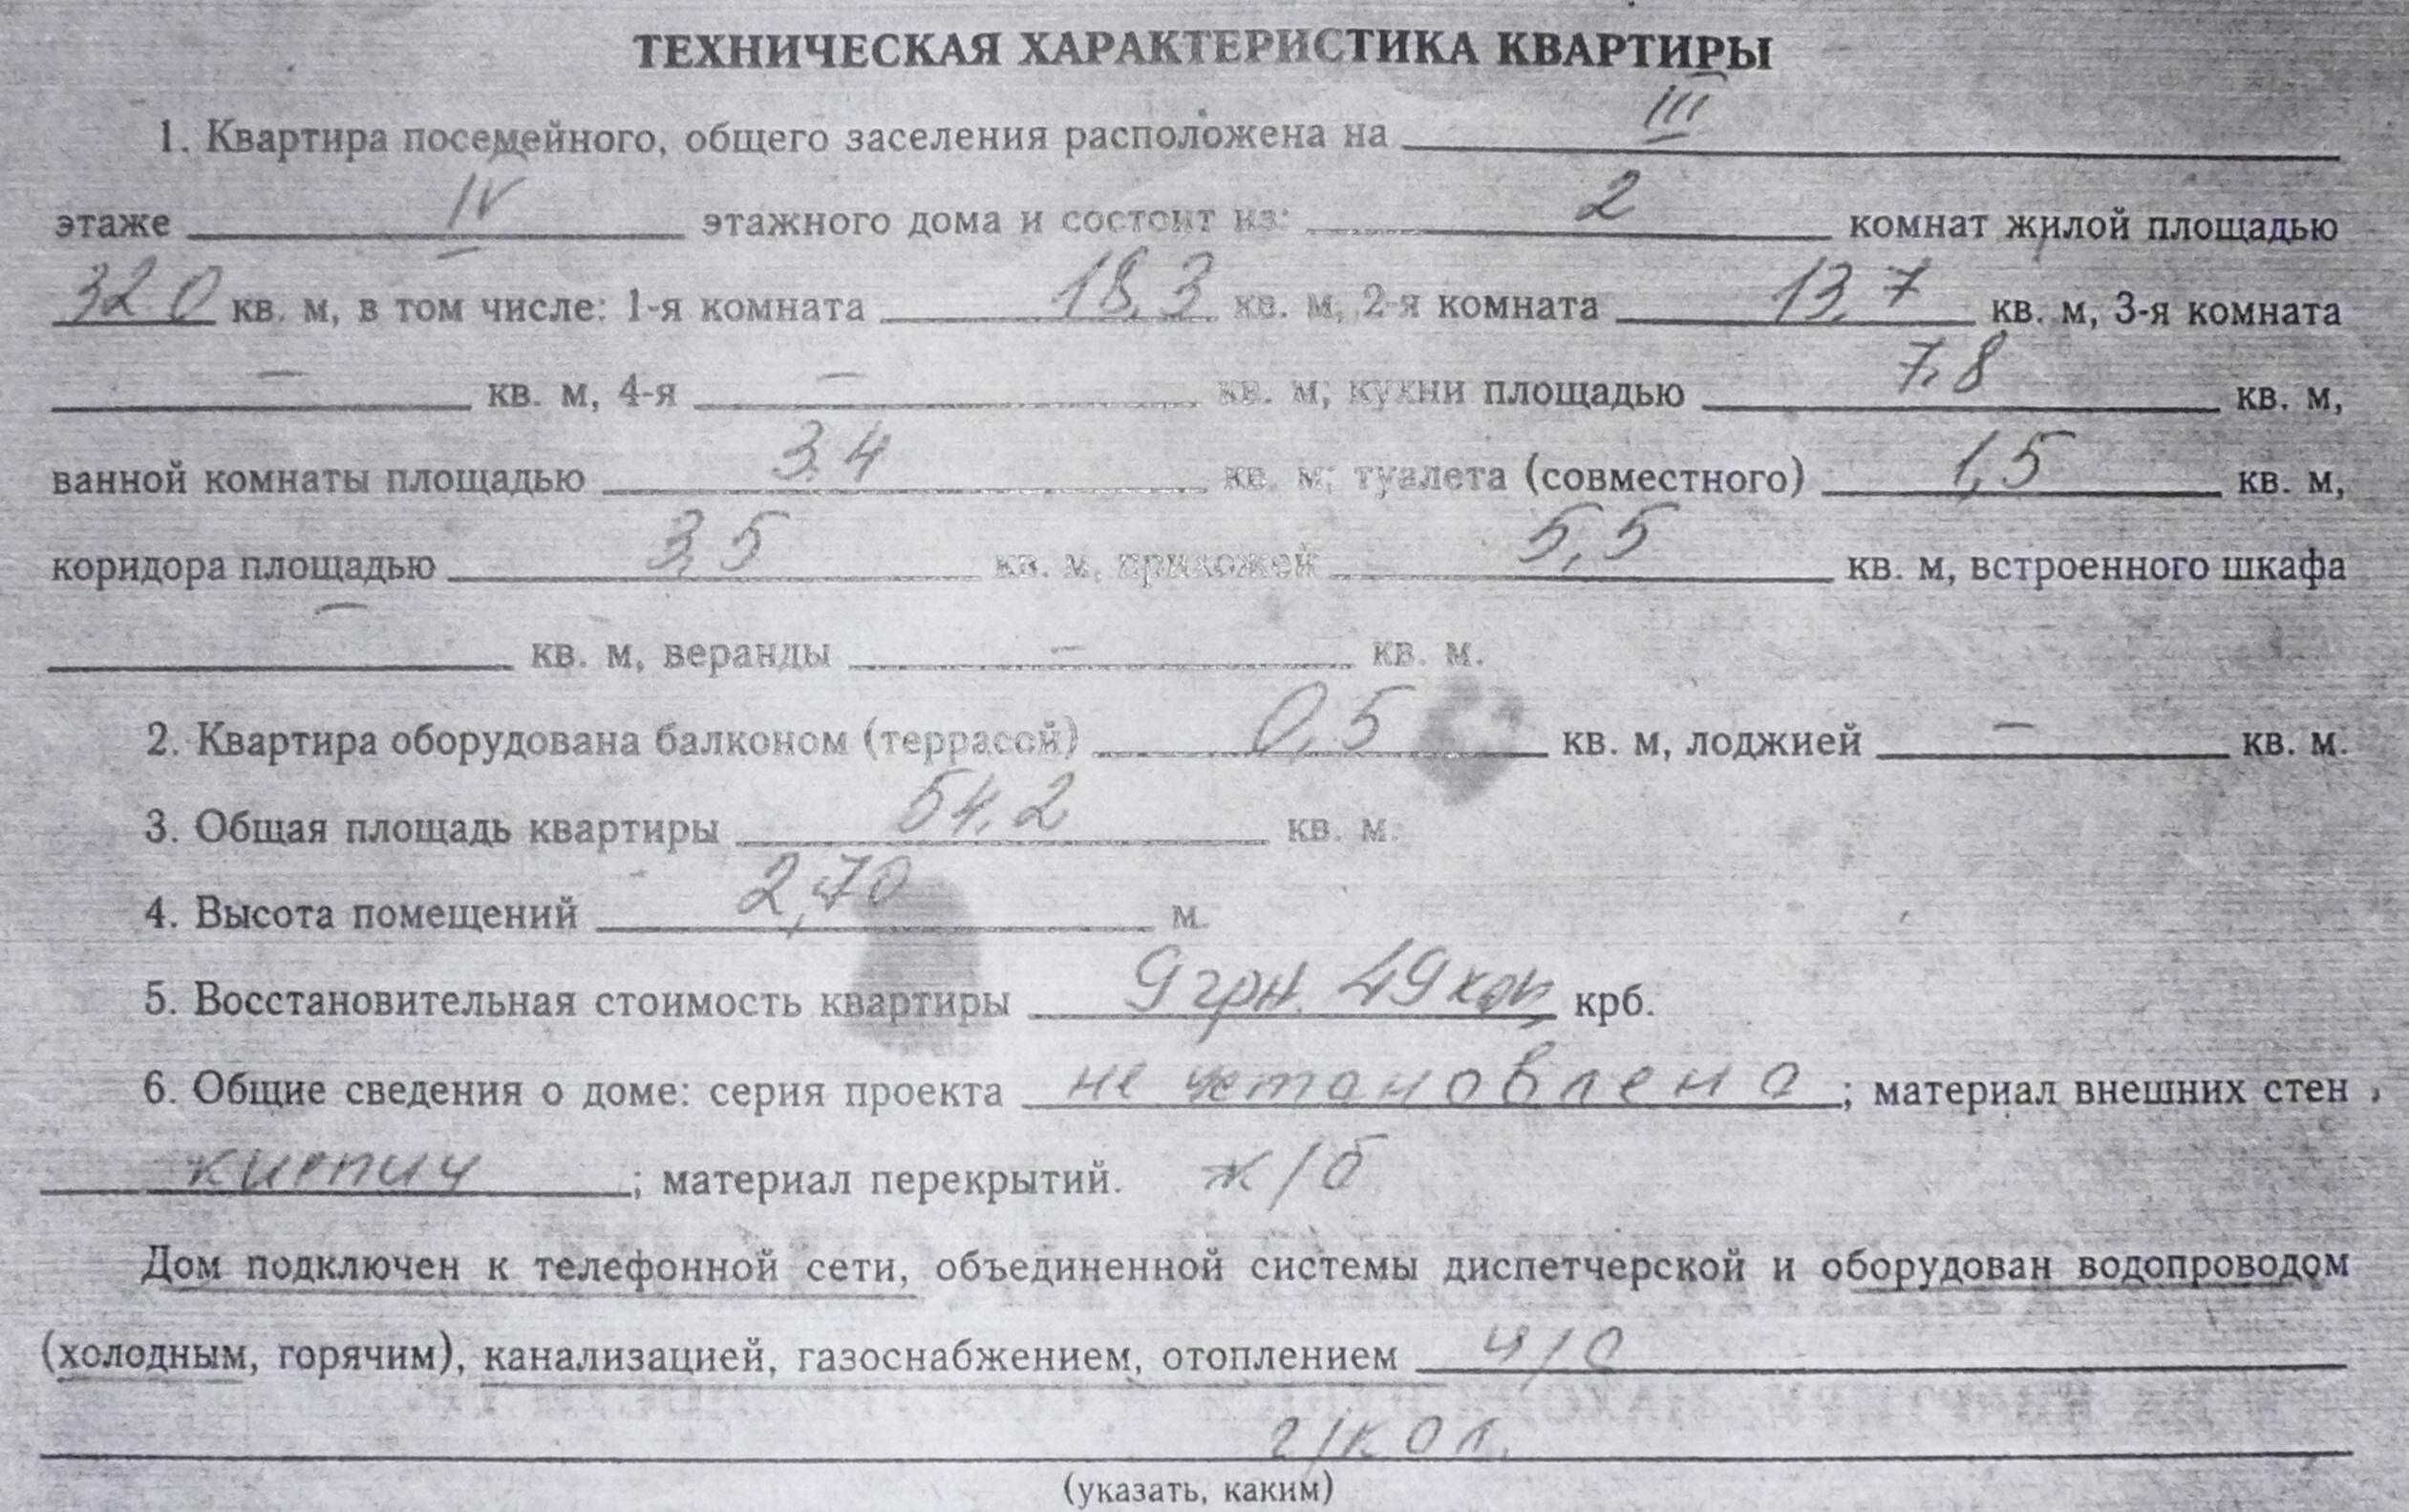 ТЕХНИЧЕСКАЯ ХАРАКТЕРИСТИКА КВАРТИРЫ
1. Квартира посемейного, общего заселения расположена на III
этаже IV этажного дома и состоит из: 2 комнат жилой площадью
32,0 кв. м, в том числе: 1-я комната 18,3 кв. м, 2-я комната 13,7 кв. м, 3-я комната
— кв. м, 4-я — кв. м; кухни площадью 7,8 кв. м,
ванной комнаты площадью 3,4 кв. м; туалета (совместного) 1,5 кв. м,
коридора площадью 3,5 кв. м, прихожей 5,5 кв. м, встроенного шкафа
— кв. м, веранды — кв. м.
2. Квартира оборудована балконом (террасой) 0,5 кв. м, лоджией — кв. м.
3. Общая площадь квартиры 54,2 кв. м.
4. Высота помещений 2,70 м.
5. Восстановительная стоимость квартиры 9 грн. 49 коп крб.
6. Общие сведения о доме: серия проекта не установлена; материал внешних стен
кирпич; материал перекрытий. ж/б
Дом подключен к телефонной сети, объединенной системы диспетчерской и оборудован водопроводом
(холодным, горячим), канализацией, газоснабжением, отоплением ц/о
г/кол.
(указать, каким)